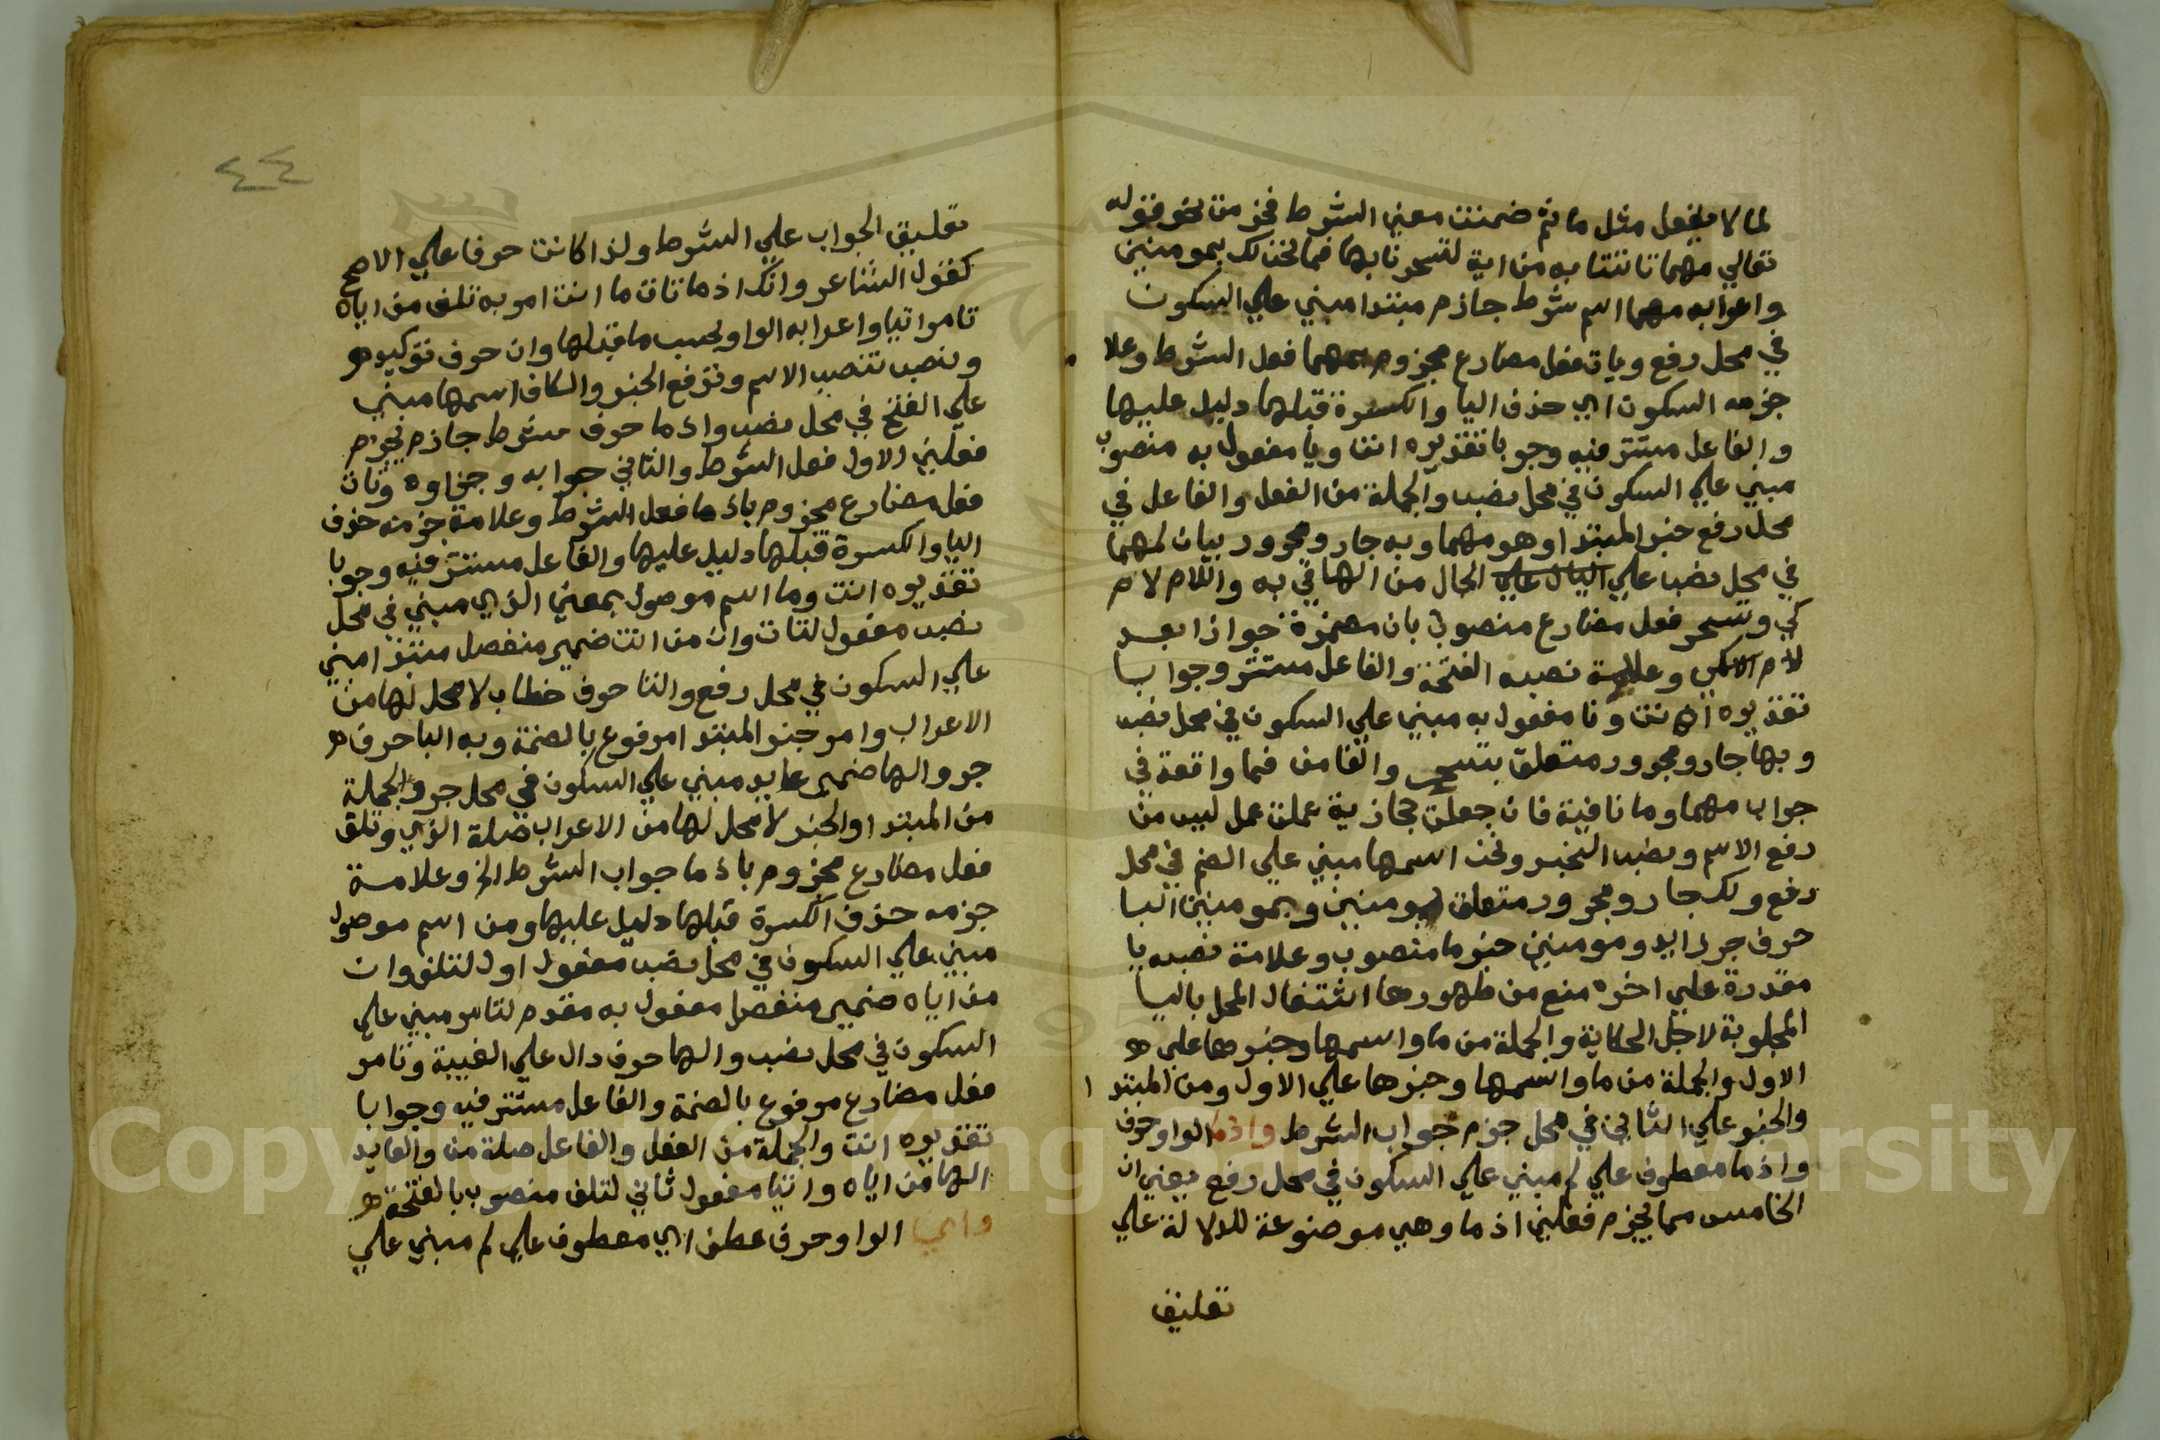 لما لا يفعل مثل ما ثم ضمنت معني الشرط فجزمت نحو قوله
تعالي مهما تاتنا به من اية لتسحرنا بها فما نحن لك بمومنين
واعرابه مهما اسم شرط جازم مبتدا مبني علي السكون
في محل رفع ويات فعل مضارع مجزوم بمهما فعل الشرط وعلا
جزمه السكون اي حذف اليا والكسرة قبلها دليل عليها
والفاعل مستتر فيه وجوبا تقديره انت ويا مفعول به منصوب
مبني علي السكون في محل نصب والجملة من الفعل والفاعل في
محل رفع خبر المبتدا وهو مهما وبه جار ومجرور بيان لمهما
في محل نصب علي الحال علي الحال من الها في به واللام لام
كي وتسحر فعل مضارع منصوب بان مضمرة جوازا بعد
لام كي وعلامة نصبه الفتحة والفاعل مستتر وجوابا
تقديره انت ونا مفعول به مبني علي السكون في محل نصب
وبها جار ومجرور متعلق بتسحر والفا من فما واقعة في
جواب مهما وما نافية فان جعلت حجازية عملت عمل ليس من
رفع الاسم ونصب الخبر ونحن اسمها مبني علي الضم في محل
رفع ولك جار ومجرور متعلق بمومنين وبمومنين البا
حرف جر زايد ومومنين خبر ما منصوب وعلامة نصبه يا
مقدرة علي اخره منع من ظهورها اشتغال المحل باليا
المجلوبة لاجل الحكاية والجملة من ما واسمها وخبرها علي
الاول والجملة من ما واسمها وخبرها علي الاول ومن المبتدا
والخبر علي الثاني في محل جزم جواب الشرط واذما الواو حرف
واذما معطوف علي لم مبني علي السكون في محل رفع يعني ان
الخامس مما يجزم فعلين اذما وهي موضوعة للدلالة علي
تعليق
٤٤
تعليق الجواب علي الشرط ولذا كانت حرفا علي الاصح
كقول الشاعر وانك اذما تات ما انت امر به تلف من اياه
تامر اتيا واعرابه الواو بحسب ما قبلها وان حرف توكيد
ونصب تنصب الاسم وترفع الخبر والكاف اسمها مبني
علي الفتح في محل نصب واذما حرف شرط جازم يجزم
فعلين الاول فعل الشرط والثاني جوابه وجزاوه وتات
فعل مضارع مجزوم باذما فعل الشرط وعلامة جزمه حذف
اليا والكسرة قبلها دليل عليها والفاعل مستتر فيه وجوبا
تقديره انت وما اسم موصول بمعني الذي مبني في محل
نصب مفعول لتات وان من انت ضمير منفصل مبتدا مبني
علي السكون في محل رفع والتا حرف خطاب لا محل لها من
الاعراب وامر خبر المبتدا مرفوع بالضمة وبه البا حرف
جر والها ضمير عايد مبني علي السكون في محل جر والجملة
من المبتدا والخبر لا محل لها من الاعراب صلة الذي وتلف
فعل مضارع مجزوم باذما جواب الشرط الخ وعلامة
جزمه حذف الكسرة قبلها دليل عليها ومن اسم موصول
مبني علي السكون في محل نصب مفعول اول لتلف وان
من اياه ضمير منفصل مفعول به مقدم لتامر مبني علي
السكون في محل نصب والها حرف دال علي الغيبة وتامر
فعل مضارع مرفوع بالضمة والفاعل مستتر فيه وجوابا
تقديره انت والجملة من الفعل والفاعل صلة من والعايد
الها من اياه واتيا مفعول ثاني لتلف منصوب بالفتحة
واي الواو حرف عطف اي معطوف علي لم مبني علي
Copyright © King Saud University